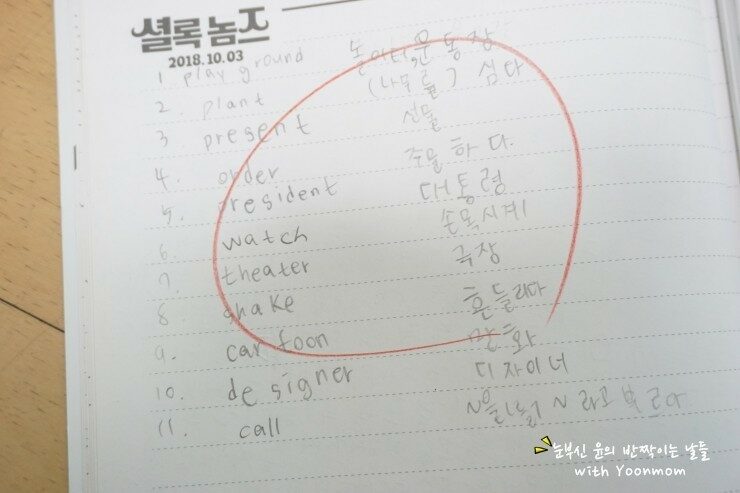 셜록놈즈
2018.10.03
1 playground 놀이터,운동장
2. plant (나무를) 심다
3 present 선물
4. order 주문하다.
5. president 대통령
6. watch 손목시계
7. theater 극장
8. shake 흔들리다
9. cartoon 만화
10. designer 디자이너
11. call ~을(를) ~라고 부르다
눈부신 윤의 반짝이는 날들
with Yoonmom